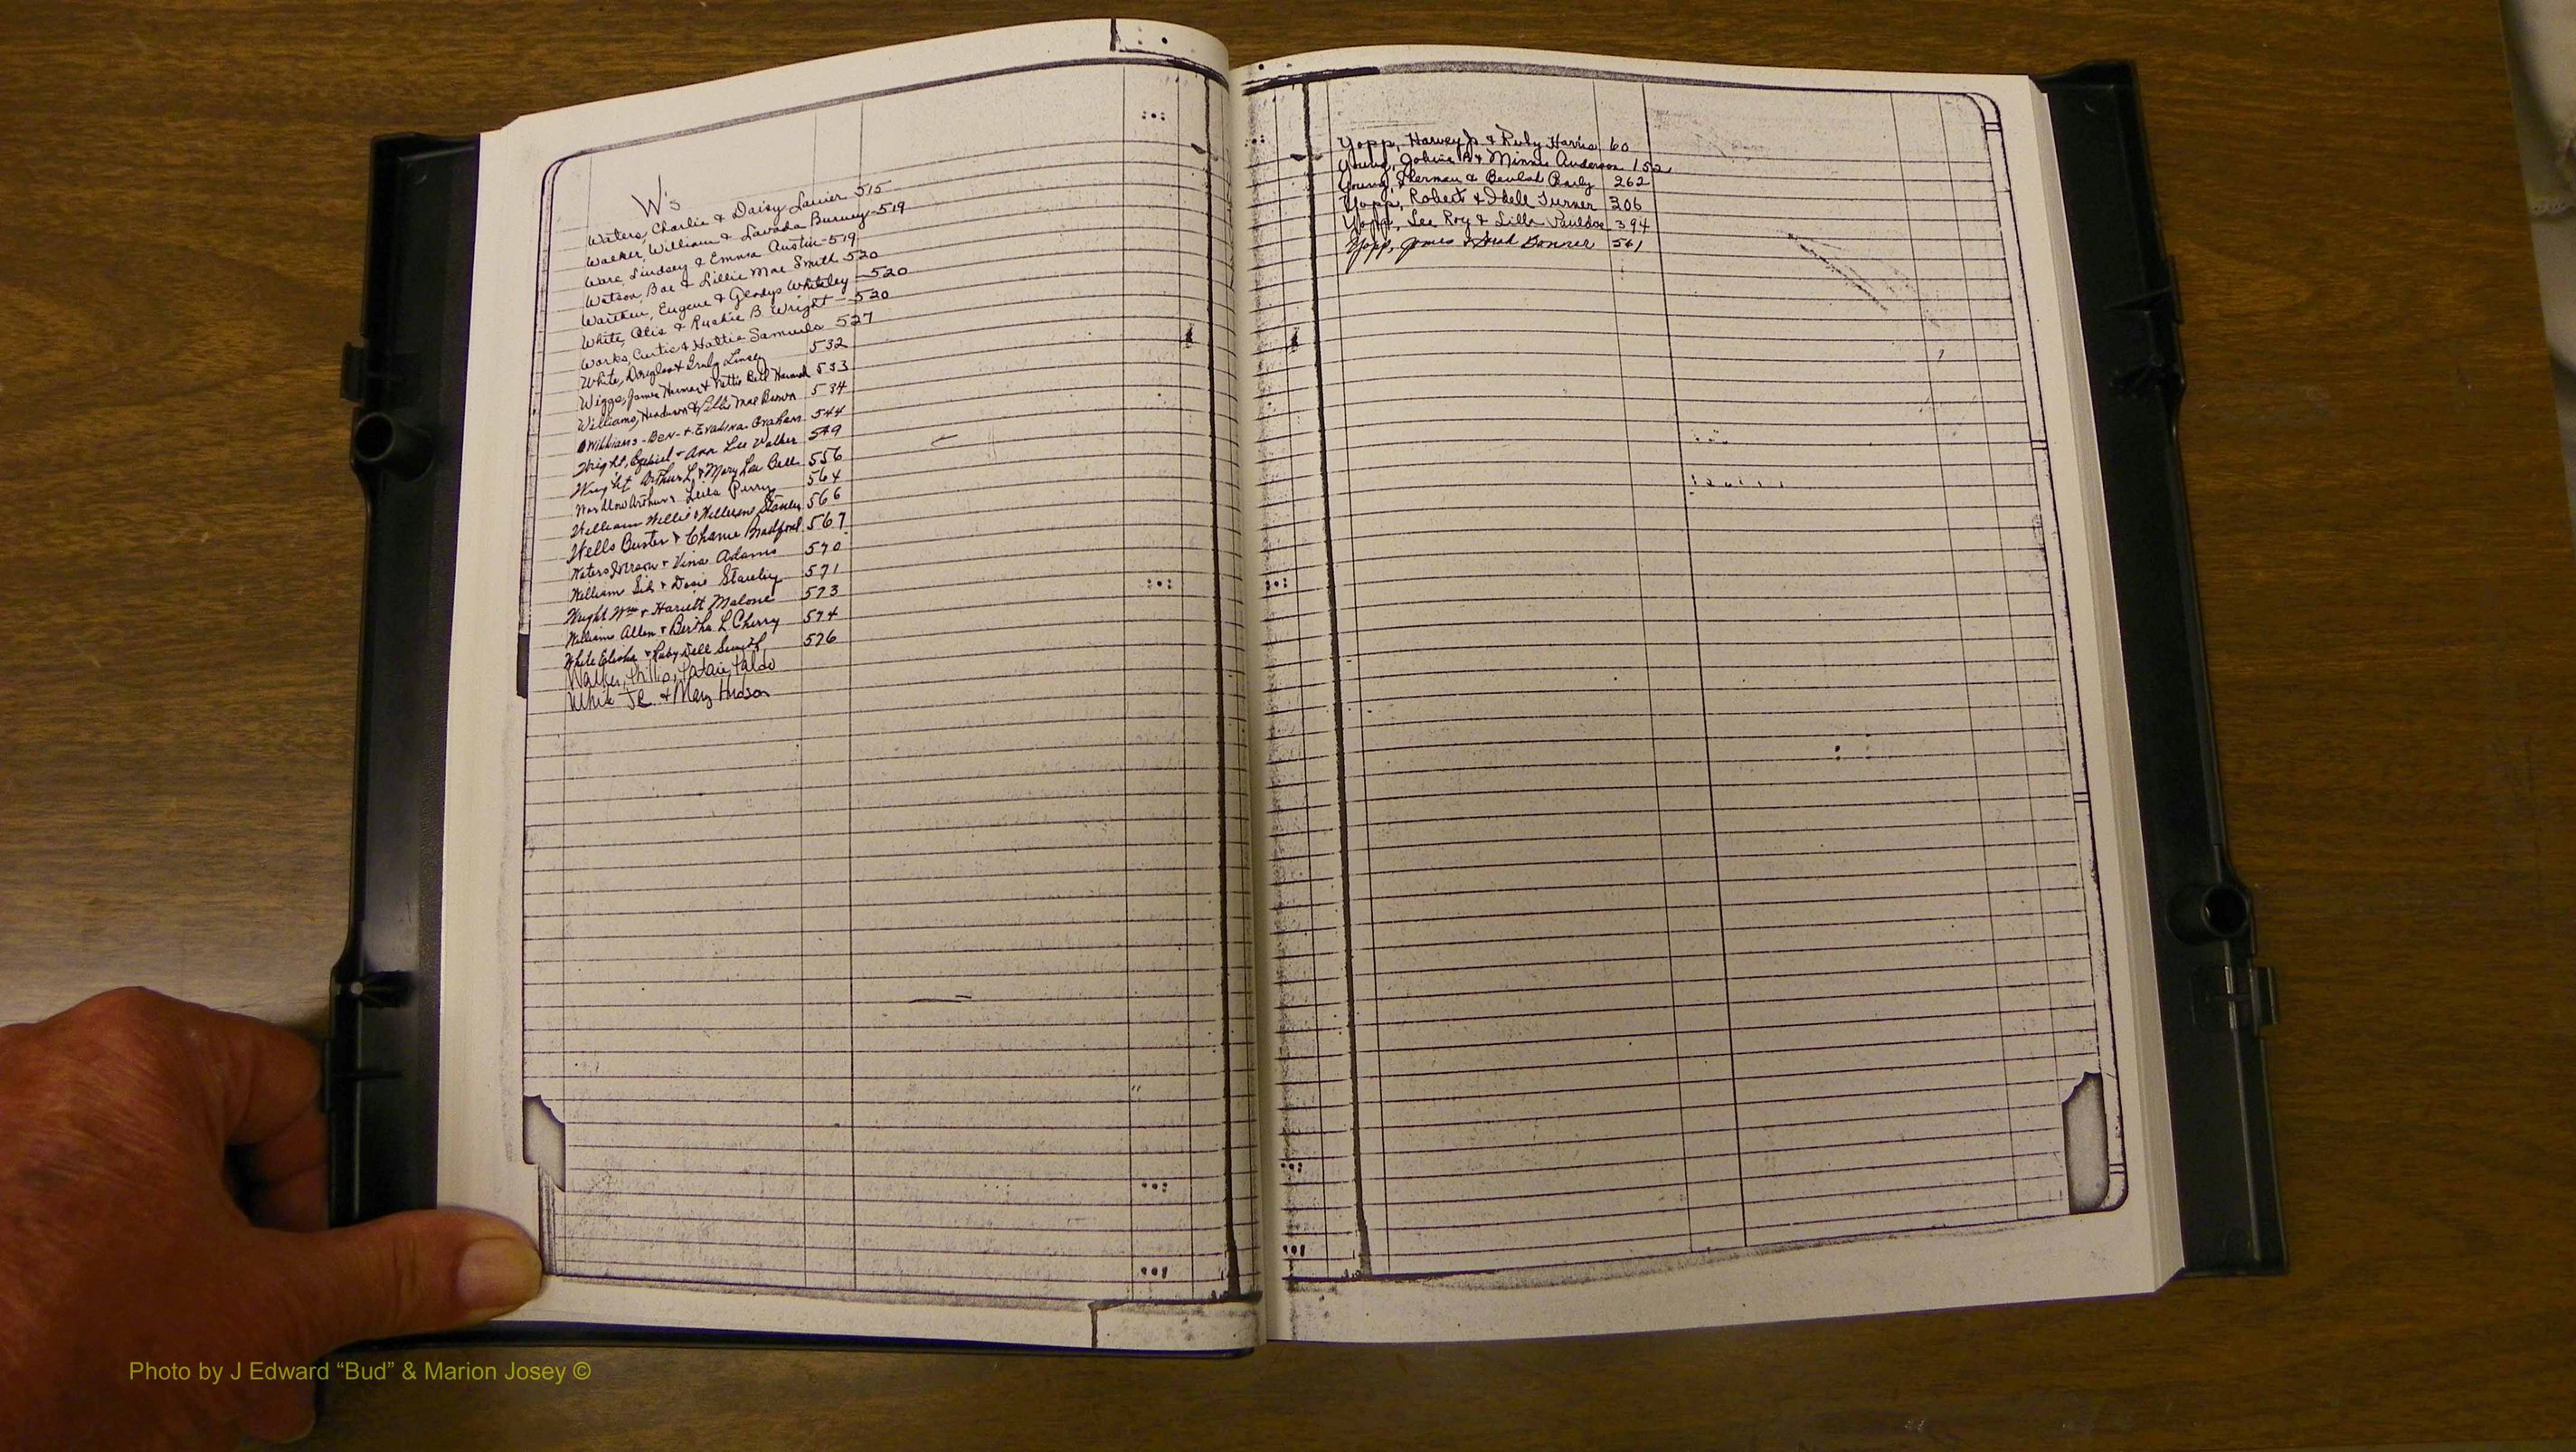 W's
Waters, Charlie & Daisy Lanier 515
Walker, William & Lavada Burney-519
Ware, Lindsey & Emma Austin-519
Watson, Bae & Lillie Mae Smith 520
Warthen, Eugene & Gladys Whiteley-520
White, Otis & Ruthie B. Wright-520
Works, Curtis & Hattie Samuels 527
White, Douglas & Linsey 532
Wiggs, James & Nettie Bell 533
Williams, & Mae Brown 534
Williams-Ben-& Evalina Graham 544
Wright, Ezekiel & Ann Lee Walker 549
Wright Arthur L & Mary Lee Bell 556
Arthur & Leila Perry 564
William Willie & Stanley 566
Wells Buster & Bradford 567
Waters & Vina Adams 570
William & Stanley 571
Wright Wm & Hariett Malone 573
Williams Allen & Bertha L Cherry 574
White Elisha & Ruby Dell Smith 576
Walker,
White J.C. & Mary Hudson
Yopp, Harvey Jr & Ruby Harris 60
Young, & Minnie Anderson 152
Young, Sherman & Beulah 262
Yopp, Robert & Idell Turner 306
Yopp, Lee Roy & Lilla 394
Yopp, James & Bonner 561
Photo by J Edward “Bud” & Marion Josey ©